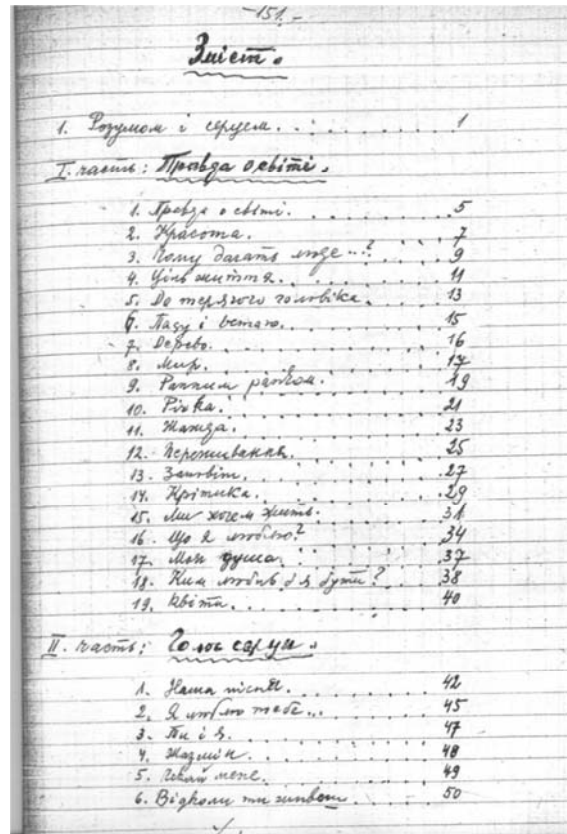 -151.-
Зміст.
1. Розумом і серцем. . . . . . . 1
I. часть: Правда о світі.
1. Правда о світі. . . . . . . 5
2. Красота. . . . . . . 7
3. Чому дагать люде...? . . . 9
4. Ціль життя. . . . . . . 11
5. До чоловіка. . . . 13
6. Паду і встаю. . . . . . . 15
7. Дерево. . . . . . . 16
8. Мир. . . . . . . 17
9. Раннім . . . . 19
10. Рівка. . . . . . . 21
11. Жажда. . . . . . . 23
12. Переживання. . . . . . . 25
13. Заповіт. . . . . . . 27
14. Крітика. . . . . . . 29
15. Ми хочем жить. . . . . . . 31
16. Що я люблю? . . . . . . 34
17. Моя душа. . . . . . . 37
18. Ким любив б я бути? . . . 38
19. Квіти. . . . . . . 40
II. часть: Голос серця.
1. Наша пісня. . . . . . . 42
2. Я люблю тебе... . . . . . 45
3. Ти і я. . . . . . . 47
4. Жазмін. . . . . . . 48
5. Чекай мене. . . . . . . 49
6. Відколи ти живеш. . . . . 50
./.